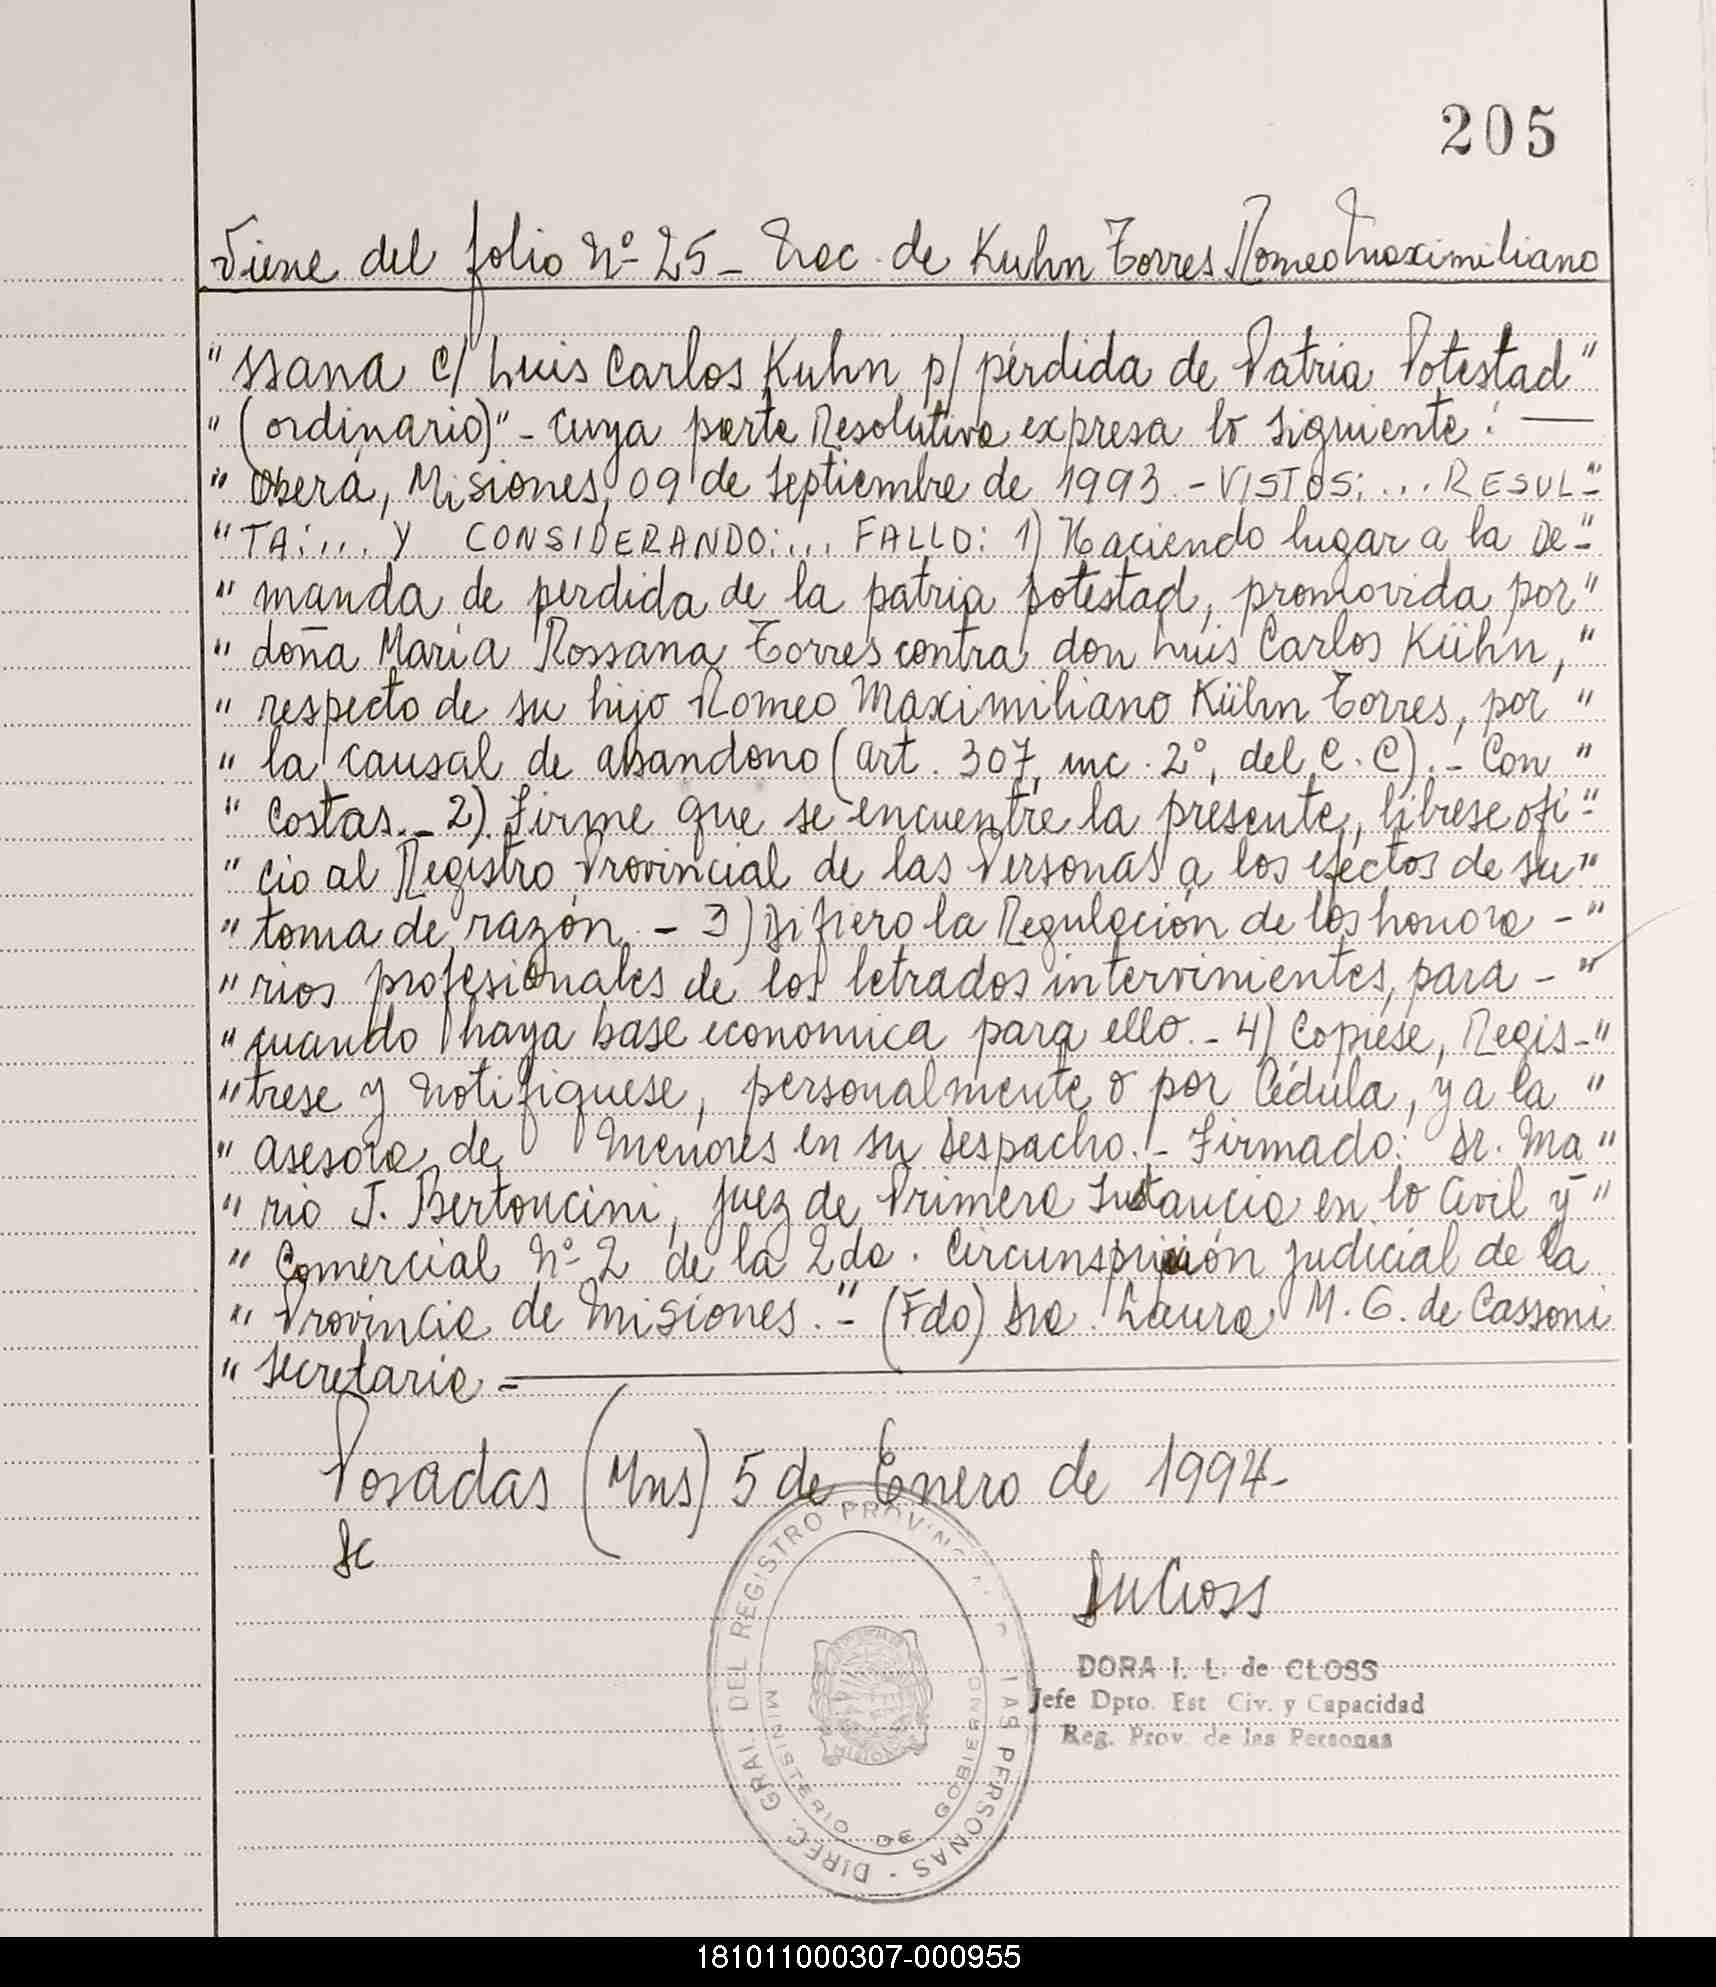 205
Viene del folio Nº 25 - Nac. de Kuhn Torres Romeo Maximiliano
" ssana c/ Luis Carlos Kuhn p/ pérdida de Patria Potestad "
" (ordinario)" - cuya parte Resolutiva expresa lo siguiente: —
" Oberá, Misiones, 09 de septiembre de 1993 - VISTOS: ... RESUL- "
" TA: ... Y CONSIDERANDO: ... FALLO: 1) Haciendo lugar a la De- "
" manda de perdida de la patria potestad, promovida por "
" doña María Rossana Torres contra don Luis Carlos Kühn, "
" respecto de su hijo Romeo Maximiliano Kühn Torres, por "
" la causal de abandono (art. 307, inc. 2º, del C.C). - Con "
" Costas. - 2) Firme que se encuentre la presente, líbrese ofi- "
" cio al Registro Provincial de las Personas a los efectos de su "
" toma de razón - 3) Difiero la Regulación de los honora - "
" rios profesionales de los letrados intervinientes, para - "
" cuando haya base economica para ello. - 4) Copiese, Regis- "
" trese y Notifiquese, personalmente o por Cédula, y a la "
" Asesora de Menores en su despacho. - Firmado: Dr. Ma "
" rio J. Bertoncini, juez de Primera Instancia en lo Civil y "
" Comercial Nº 2 de la 2da. Circunspripción judicial de la
" Provincia de Misiones. " - (Fdo) Dra. Laura M. G. de Cassoni
" Secretaria -
Posadas (Mns) 5 de Enero de 1994 -
DIREC. GRAL. DEL REGISTRO PROVINC LAS PERSONAS -
MINISTERIO DE GOBIERNO
DORA I. L. de CLOSS
Jefe Dpto. Est Civ. y Capacidad
Reg. Prov. de las Personas
181011000307-000955